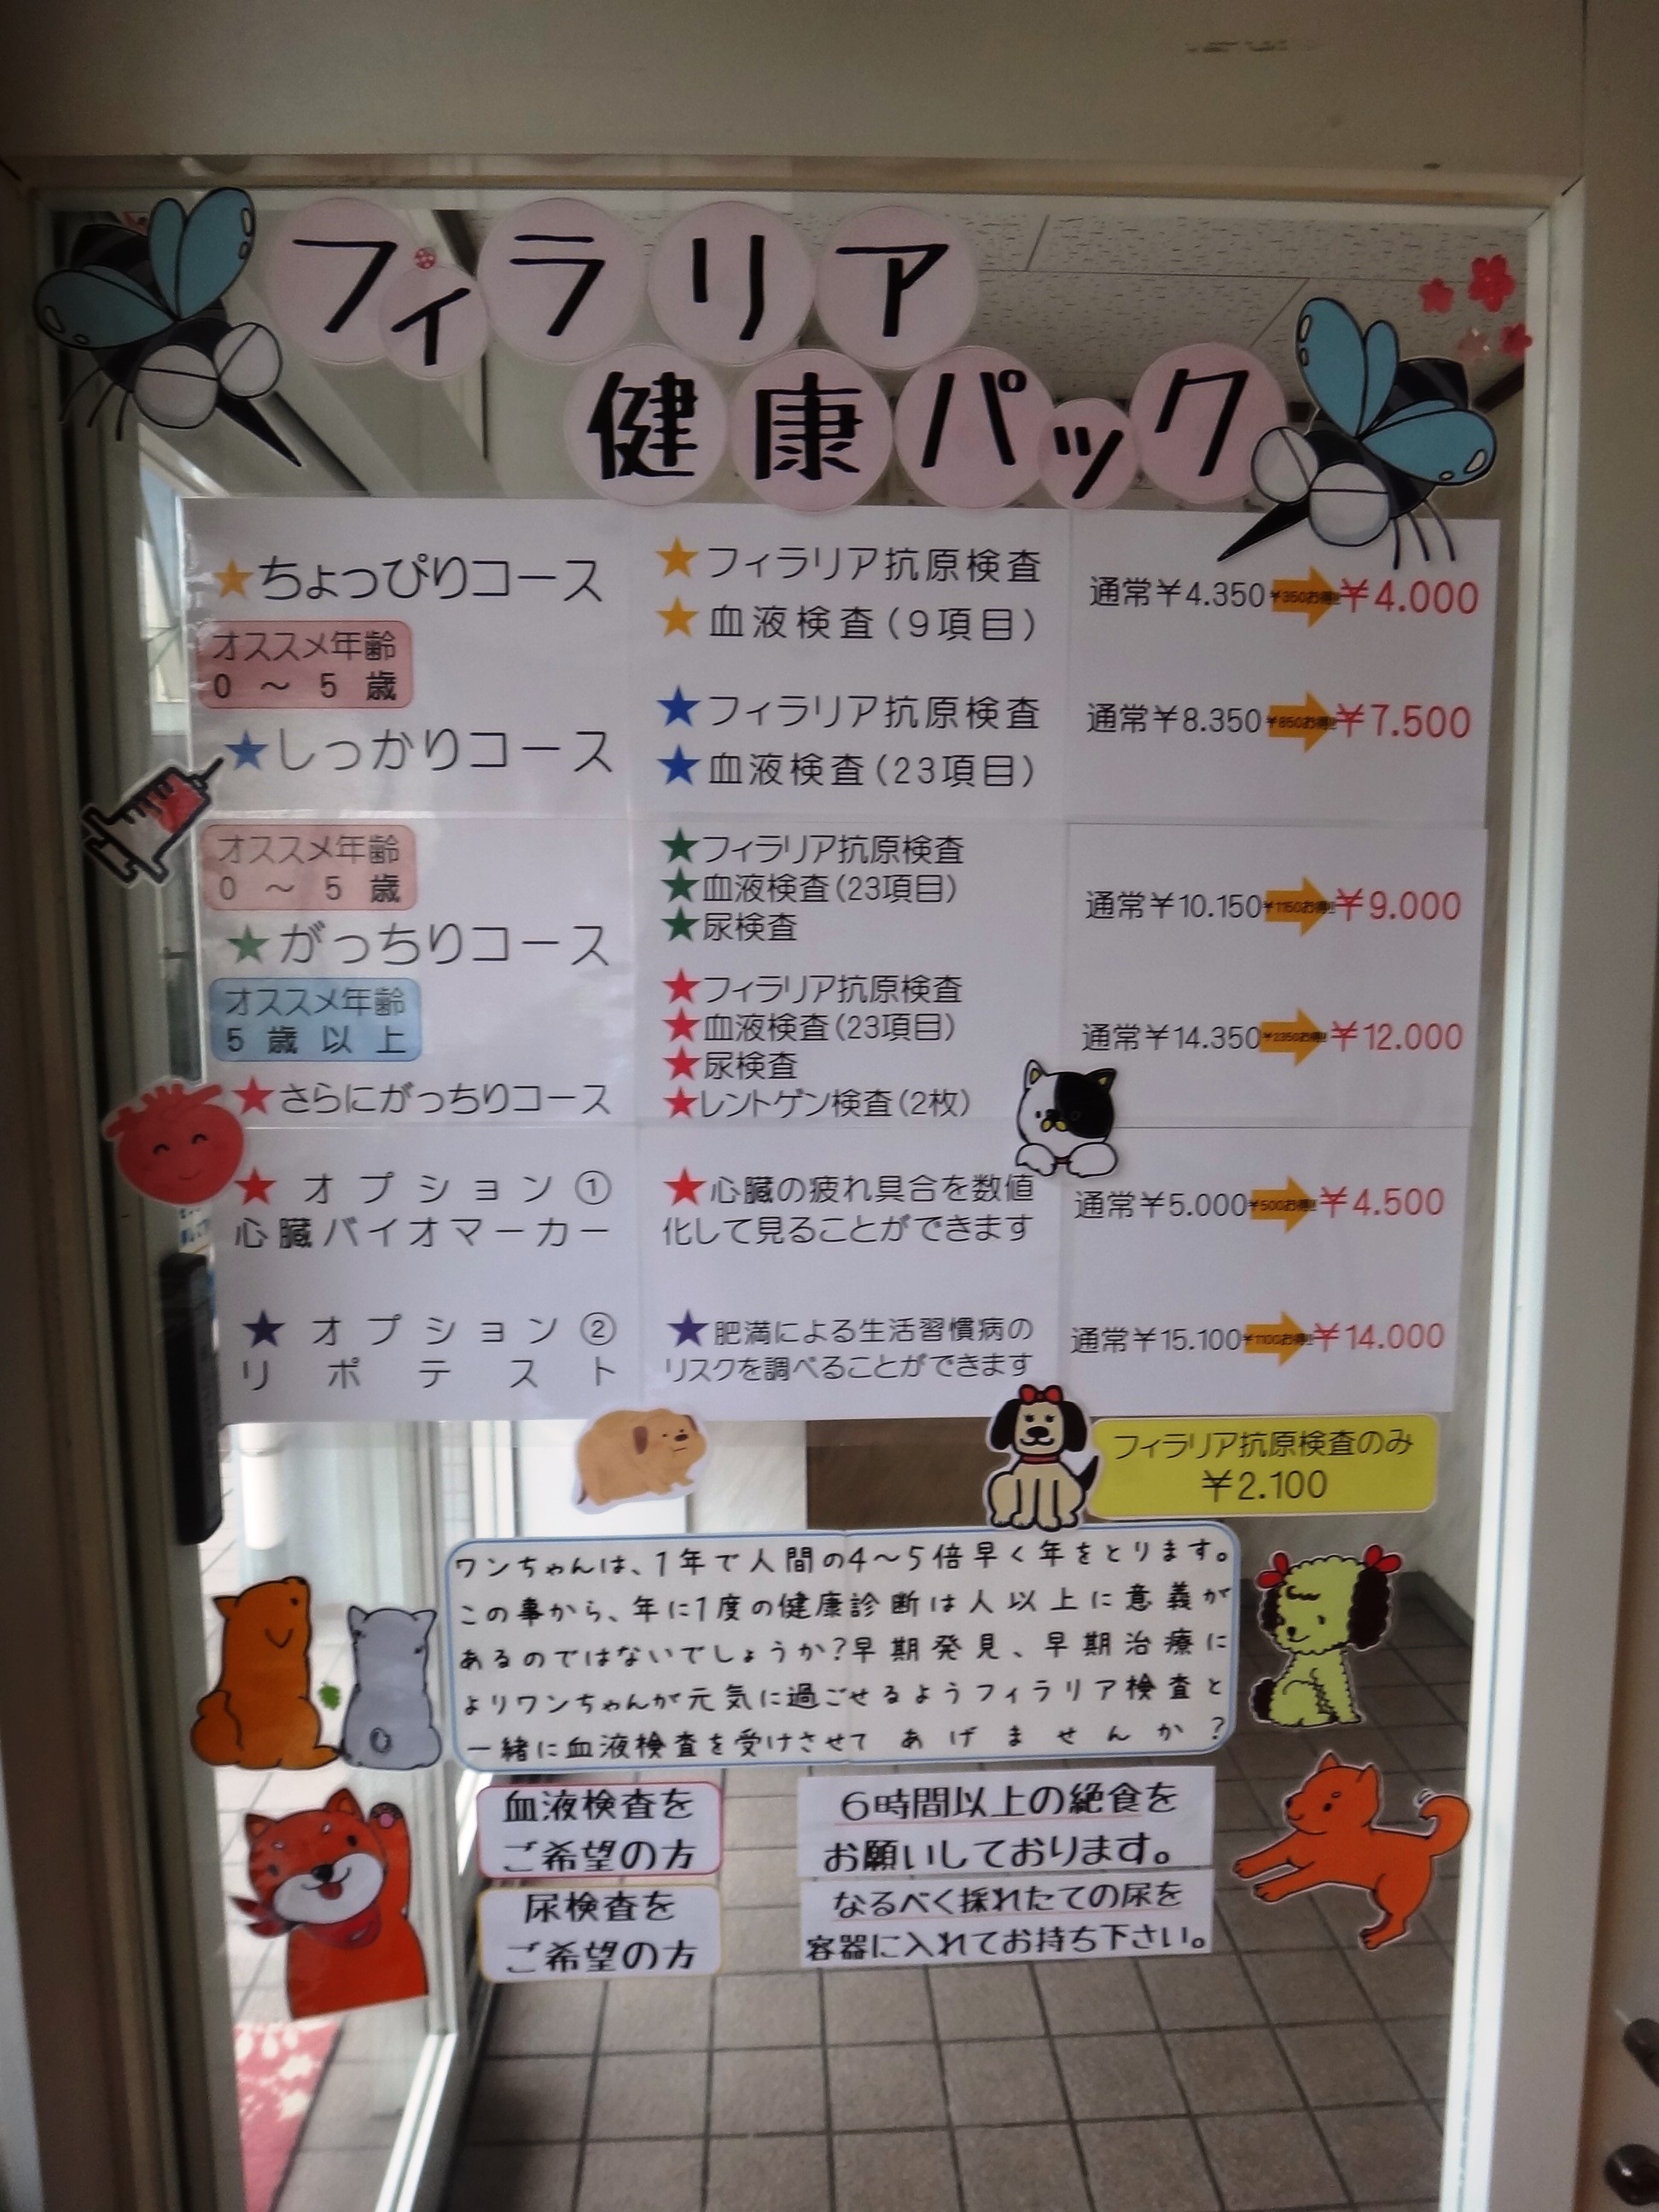 フィラリア
健康パック
★ちょっぴりコース
★フィラリア抗原検査
★血液検査(9項目)
通常￥4.350 ￥350お得!! ￥4.000
オススメ年齢
0～5歳
★しっかりコース
★フィラリア抗原検査
★血液検査(23項目)
通常￥8.350 ￥850お得!! ￥7.500
オススメ年齢
0～5歳
★がっちりコース
★フィラリア抗原検査
★血液検査(23項目)
★尿検査
通常￥10.150 ￥1150お得!! ￥9.000
オススメ年齢
5歳以上
★さらにがっちりコース
★フィラリア抗原検査
★血液検査(23項目)
★尿検査
★レントゲン検査(2枚)
通常￥14.350 ￥2350お得!! ￥12.000
★オプション①
心臓バイオマーカー
★心臓の疲れ具合を数値
化して見ることができます
通常￥5.000 ￥500お得!! ￥4.500
★オプション②
リポテスト
★肥満による生活習慣病の
リスクを調べることができます
通常￥15.100 ￥1100お得!! ￥14.000
フィラリア抗原検査のみ
￥2.100
ワンちゃんは、1年で人間の4～5倍早く年をとります。
この事から、年に1度の健康診断は人以上に意義が
あるのではないでしょうか?早期発見、早期治療に
よりワンちゃんが元気に過ごせるようフィラリア検査と
一緒に血液検査を受けさせてあげませんか?
血液検査を
ご希望の方
6時間以上の絶食を
お願いしております。
尿検査を
ご希望の方
なるべく採れたての尿を
容器に入れてお持ち下さい。